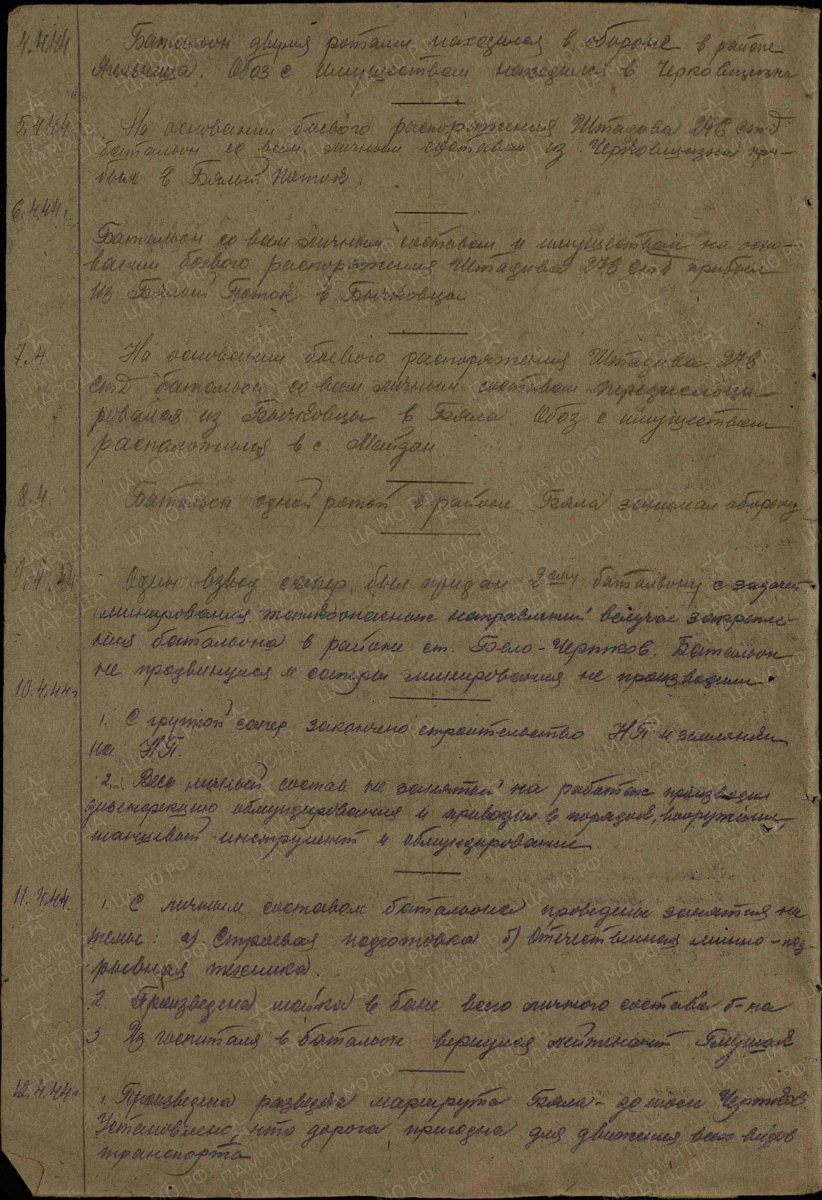 4.4.44 Батальон двумя ротами находился в обороне в районе
Ягельница. Обоз с имуществом находился в Черковщизна
5.4.44 На основании боевого распоряжения Штадива 276 стд
батальон со всем личным составом из Черковщизна при-
был в Бялый Поток.
6.4.44 г.
Батальон со всем личным составом и имуществом на осно-
вании боевого распоряжения Штадива 276 стд прибыл
из Бялый Поток в Бычковцы
7.4. На основании боевого распоряжения Штадива 276
стд батальон со всем личным составом передислоци-
ровался из Бычковцы в Бяла Обоз с имуществом
расположился в с. Майдан
8.4. Батальон одной ротой в районе Бяла занимал оборону
9.4.44 Один взвод сапер был придан 2ому батальону с задачей
минирования танкоопасных направлений вслучае закрепле-
ния батальона в районе ст. Бело-Чертков. Батальон
не продвинулся и саперы минирования не производили.
10.4.44г
1. С группой сапер закончено строительство НП и землянки
на НП.
2. Весь личный состав не занятый на работах производил
дизенфекцию обмундирования и приводил в порядок, вооружение
шанцевый инструмент и обмундирование
11.4.44. 1. С личным составом батальона проведены занятия на
темы: а) Строевая подготовка б) Отечественная минно-под-
рывная техника.
2. Произведена мойка в бане всего личного состава б-на
3. Из госпиталя в батальон вернулся лейтенант
12.4.44г 1. Произведена разведка маршрута Бяла - до шоссе Чертков
Установлено, что дорога пригодна для движения всех видов
транспорта